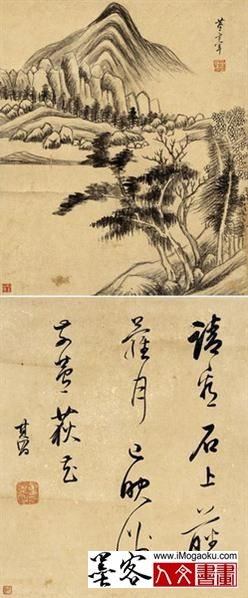 董玄宰
請看石上藤
蘿月已映洲
前蘆荻花
其昌
www.iMogaoku.com
墨客 人文書畫